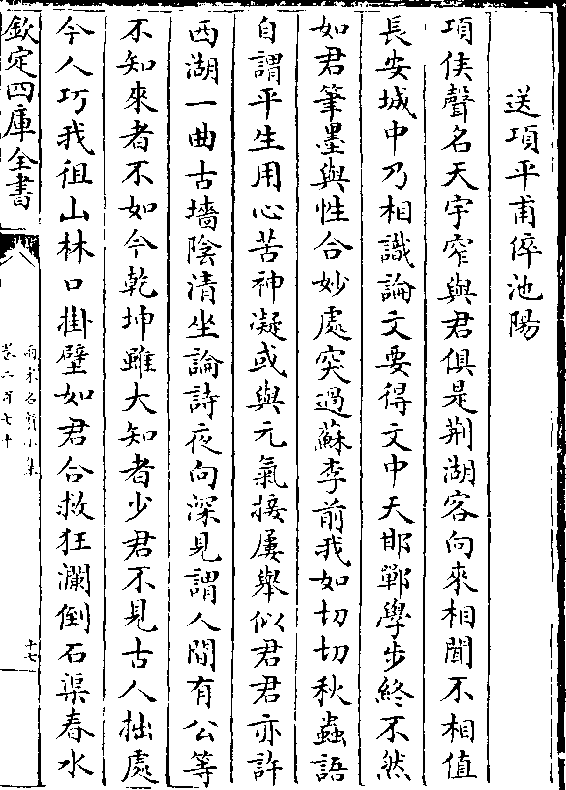 送項平甫倅池陽
項侯聲名天宇窄與君俱是荆湖客向來相聞不相值
長安城中乃相識論文要得文中天邯鄲學步終不然
如君筆墨與性合妙處突過蘇李前我如切切秋蟲語
自謂平生用心苦神凝或與元氣接屢舉似君君亦許
西湖一曲古墻陰清坐論詩夜向深見謂人間有公等
不知來者不如今乾坤雖大知者少君不見古人拙處
今人巧我徂山林口掛壁如君合救狂瀾倒石渠春水
欽定四庫全書
兩宋名賢小集
卷二百七十
十七